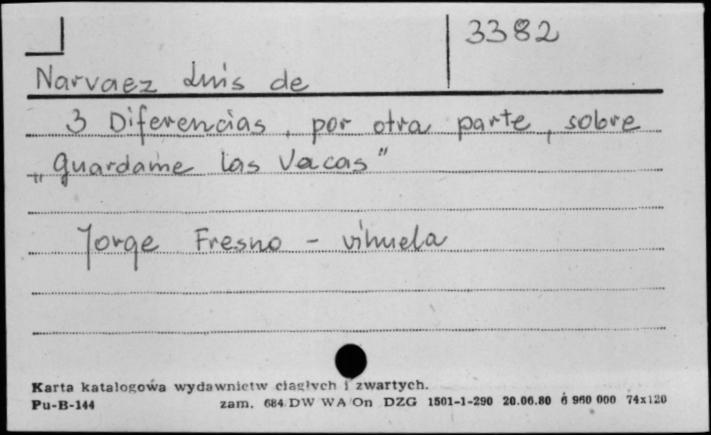 3382
Narvaez Luis de
3 Diferencias, por otra parte, sobre
„Guardame las Vacas”
Jorge Fresno - vihuela
Karta katalogowa wydawnictw ciągłych i zwartych.
Pu-B-144 zam. 684 DW WA On DZG 1501-1-290 20.06.80 6 960 000 74x120